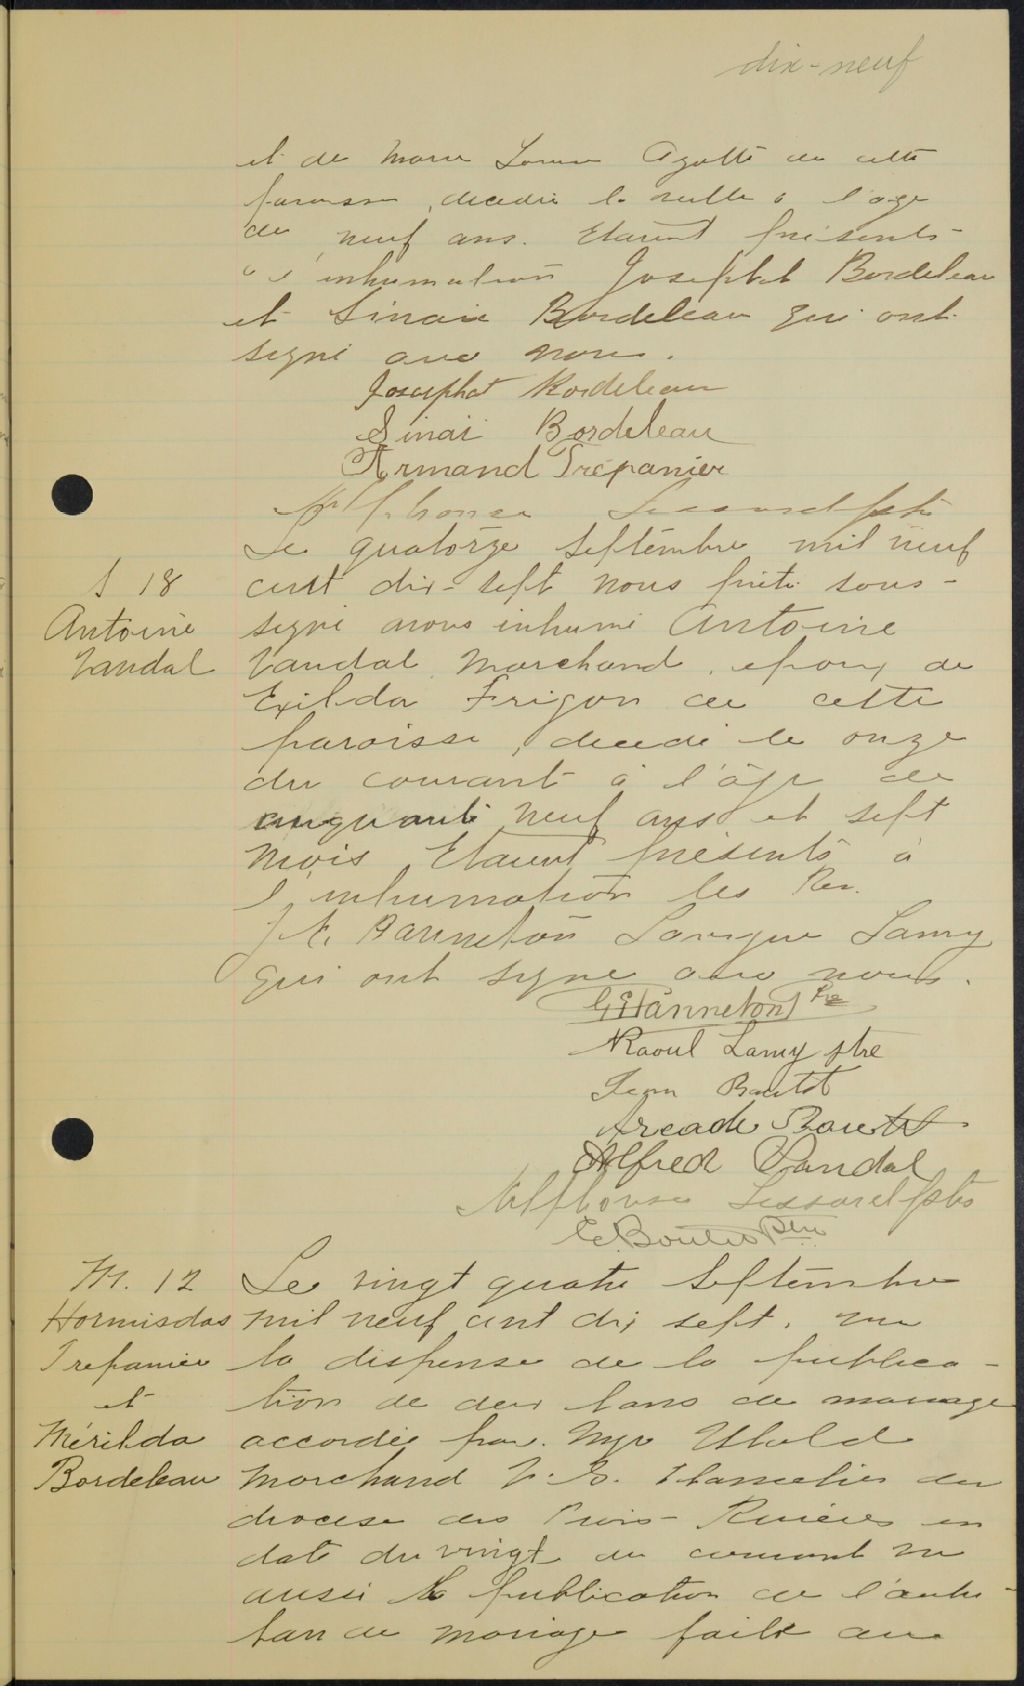 dix-neuf
et de Marie Louise Ayotte de cette
paroisse, décédée la veille à l'âge
de neuf ans. Etaient présents
à l'inhumation Josaphat Bordeleau
et Sinaie Bordeleau qui ont
signé avec nous.
Josaphat Bordeleau
Sinai Bordeleau
Armand Trépanier
Alphonse Lessard ptre
S 18
Antoine
Vandal
Le quatorze septembre mil neuf
cent dix-sept nous prêtre sous-
signé avons inhumé Antoine
Vandal, Marchand, époux de
Exilda Frigon de cette
paroisse, décédé le onze
du courant à l'âge de
cinquante neuf ans et sept
mois. Etaient présents à
l'inhumation les Rev.
Panneton Lamy
qui ont signé avec nous.
Panneton Ptre
Raoul Lamy ptre
Boutet
Arcade Boutet
Alfred Vandal
Alphonse Lessard ptre
E Boutet Ptre
M. 12
Hormisdas
Trepanier
et
Mérilda
Bordeleau
Le vingt quatre septembre
mil neuf cent dix sept, vu
la dispense de la publica-
tion de deux bans de mariage
accordée par Mgr Ubald
Marchand V. G. Chancelier du
diocèse des Trois-Rivières en
date du vingt du courant vu
aussi la publication de l'autre
ban de mariage faite au